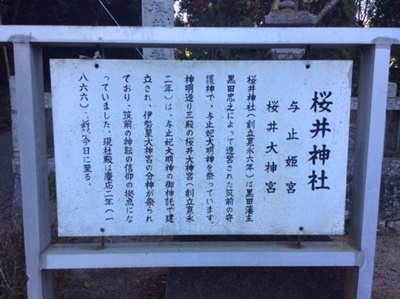 桜井神社
与止姫宮
桜井大神宮
桜井神社(創立寛永六年)は黒田藩主
黒田忠之によって造営された筑前の守
護神で、与止妃大明神を祭っています。
神明造り三殿の桜井大神宮(創立寛永
二年)は、与止妃大明神の御神託で建
立され、伊勢皇大神宮の分神が祭られ
ており、筑前の神転の信仰の拠点にな
っていました。現社殿は慶応二年(一
八六六)、今日に至る。